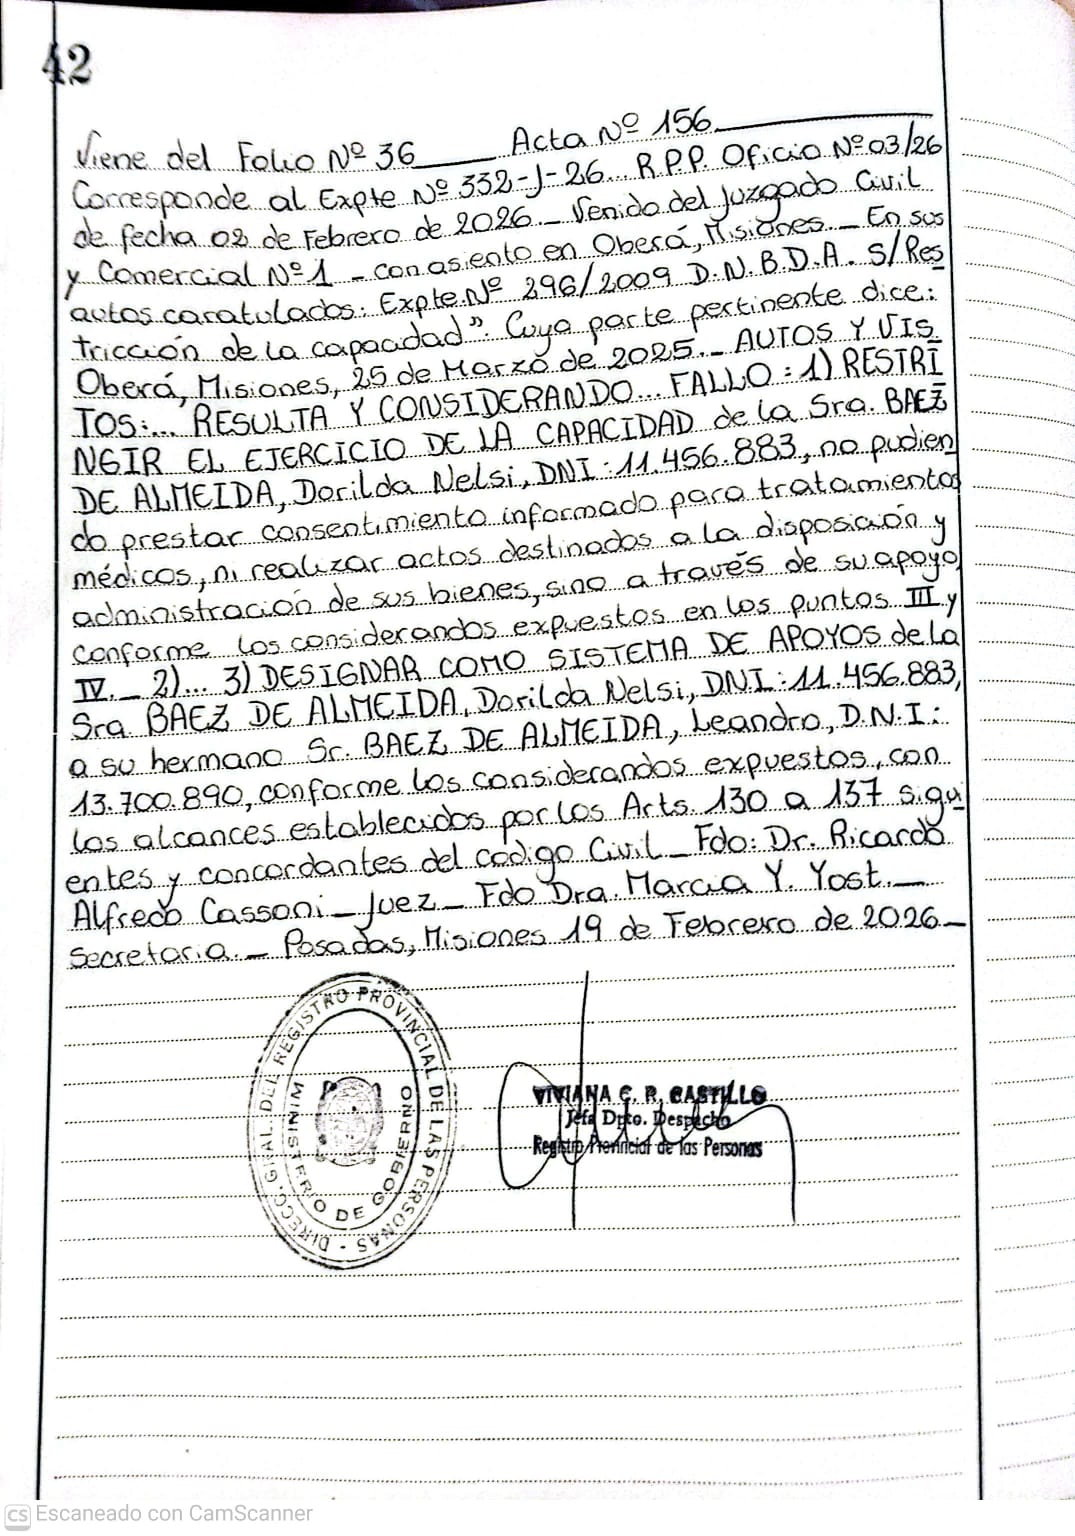 42
Viene del Folio Nº 36 Acta Nº 156
Corresponde al Expte Nº 332-J-26... R.P.P. Oficio Nº 03/26
de fecha 02 de Febrero de 2026.- Venido del Juzgado Civil
y Comercial Nº 1 - con asiento en Oberá, Misiones.- En sus
autos caratulados: Expte.Nº 296/2009 D.N.B.D.A. S/Res
tricción de la capacidad". Cuya parte pertinente dice:
Oberá, Misiones, 25 de Marzo de 2025.- AUTOS Y VIS
TOS:... RESULTA Y CONSIDERANDO... FALLO: 1) RESTRI
NGIR EL EJERCICIO DE LA CAPACIDAD de la Sra. BAEZ
DE ALMEIDA, Dorilda Nelsi, DNI: 11.456.883, no pudien
do prestar consentimiento informado para tratamientos
médicos, ni realizar actos destinados a la disposición y
administración de sus bienes, sino a través de su apoyo,
conforme los considerandos expuestos en los puntos III y
IV.- 2)... 3) DESIGNAR COMO SISTEMA DE APOYOS de la
Sra. BAEZ DE ALMEIDA, Dorilda Nelsi, DN.I: 11.456.883,
a su hermano Sr. BAEZ DE ALMEIDA, Leandro, D.N.I:
13.700.890, conforme los considerandos expuestos, con
los alcances establecidos por los Arts. 130 a 137 sigui
entes y concordantes del código Civil - Fdo: Dr. Ricardo
Alfredo Cassoni - Juez - Fdo Dra. Marcia Y. Yost.-
Secretaria.- Posadas, Misiones 19 de Febrero de 2026-
DIRECC. GRAL. DEL REGISTRO PROVINCIAL DE LAS PERSONAS -
MINISTERIO DE GOBIERNO
VIVIANA C. R. CASTILLO
Jefa Dpto. Despacho
Registro Provincial de las Personas
CS Escaneado con CamScanner